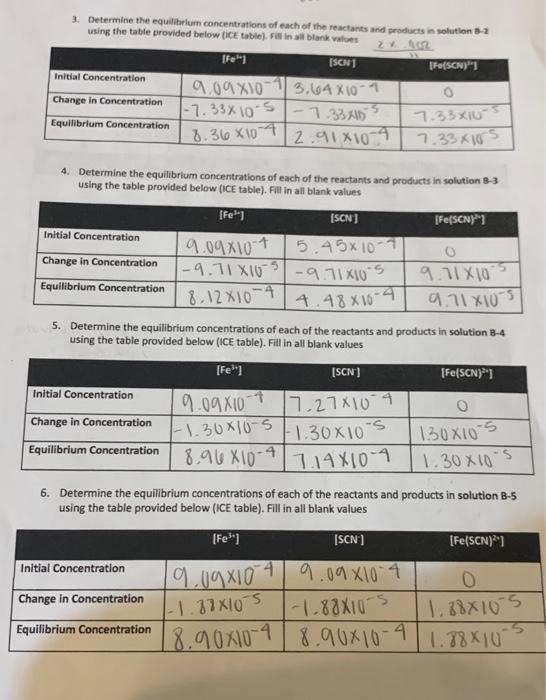 3. Determine the equilibrium concentrations of each of the reactants and products in solution B-2
using the table provided below (ICE table). Fill in all blank values
2 x .002
[Fe³⁺] [SCN⁻] [Fe(SCN)²⁺]
Initial Concentration 9.09x10⁻⁴ 3.64x10⁻⁴ 0
Change in Concentration -7.33x10⁻⁵ -7.33x10⁻⁵ 7.33x10⁻⁵
Equilibrium Concentration 8.36x10⁻⁴ 2.91x10⁻⁴ 7.33x10⁻⁵
4. Determine the equilibrium concentrations of each of the reactants and products in solution B-3
using the table provided below (ICE table). Fill in all blank values
[Fe³⁺] [SCN⁻] [Fe(SCN)²⁺]
Initial Concentration 9.09x10⁻⁴ 5.45x10⁻⁴ 0
Change in Concentration -9.71x10⁻⁵ -9.71x10⁻⁵ 9.71x10⁻⁵
Equilibrium Concentration 8.12x10⁻⁴ 4.48x10⁻⁴ 9.71x10⁻⁵
5. Determine the equilibrium concentrations of each of the reactants and products in solution B-4
using the table provided below (ICE table). Fill in all blank values
[Fe³⁺] [SCN⁻] [Fe(SCN)²⁺]
Initial Concentration 9.09x10⁻⁴ 7.27x10⁻⁴ 0
Change in Concentration -1.30x10⁻⁵ -1.30x10⁻⁵ 1.30x10⁻⁵
Equilibrium Concentration 8.96x10⁻⁴ 7.14x10⁻⁴ 1.30x10⁻⁵
6. Determine the equilibrium concentrations of each of the reactants and products in solution B-5
using the table provided below (ICE table). Fill in all blank values
[Fe³⁺] [SCN⁻] [Fe(SCN)²⁺]
Initial Concentration 9.09x10⁻⁴ 9.09x10⁻⁴ 0
Change in Concentration -1.88x10⁻⁵ -1.88x10⁻⁵ 1.88x10⁻⁵
Equilibrium Concentration 8.90x10⁻⁴ 8.90x10⁻⁴ 1.88x10⁻⁵